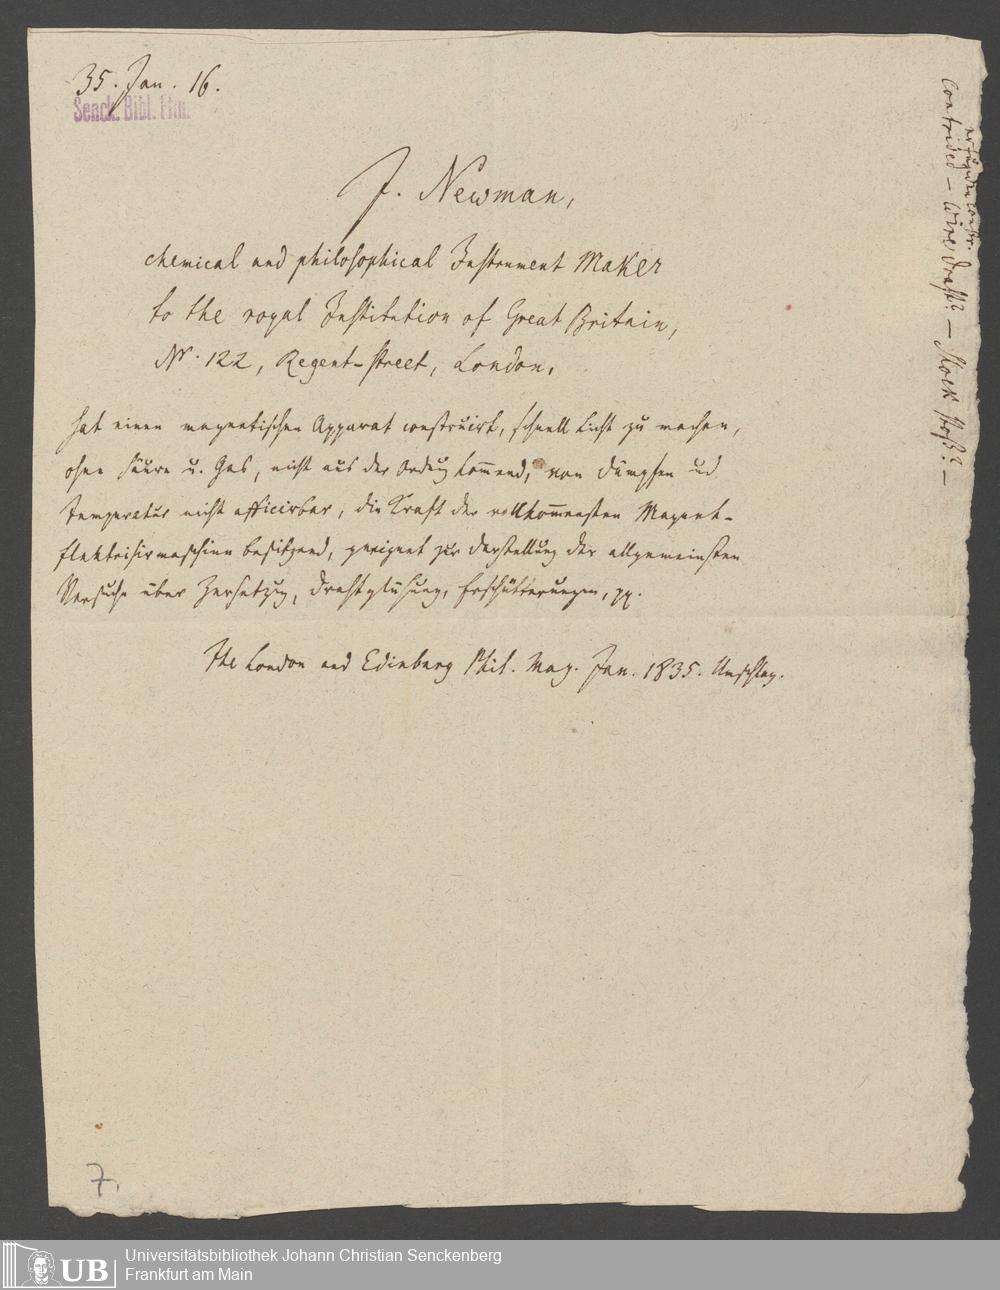 35. Jan. 16.
Senck. Bibl. Ffm.
J. Newman,
chemical and philosophical Instrument Maker
to the royal Institution of Great Britain,
Nr. 122, Regent-street, London,
hat einen magnetischen Apparat construirt, schnell Licht zu machen,
ohne Säure u. Gas, nicht aus der Ordnug kom̄end, von Dämpfen ud
Temperatur nicht afficirbar, die Kraft der vollkom̄ensten Magnet-
Elektrisirmaschine besitzend, geeignet zur Darstellung der allgemeinsten
Versuche über Zersetzg, Drahtglühung, Erschütterungen, pp.
The London and Edinburg Phil. Mag. Jan. 1835. Umschlag.
Contrided – Wire, Draht? – Shock Stoß? –
7.
UB
Universitätsbibliothek Johann Christian Senckenberg
Frankfurt am Main